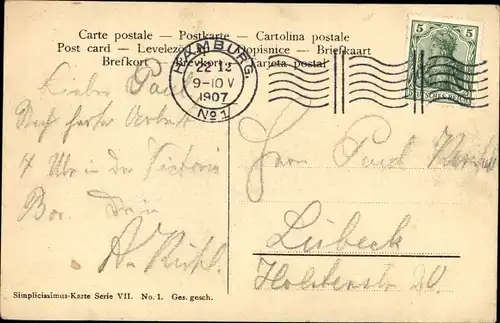 Carte postale — Postkarte — Cartolina postale
Post card — Levelező — Dopisnice — Briefkaart
Brefkort — Brevkort — Tarjeta postal
HAMBURG.
22 12
9-10 V
1907
No 1
5 5
Lieber Paul
7 Uhr in der Victoria
Bar. Dein
Herrn Paul
Lübeck
Holstenstr. 20.
Simplicissimus-Karte Serie VII. No. 1. Ges. gesch.